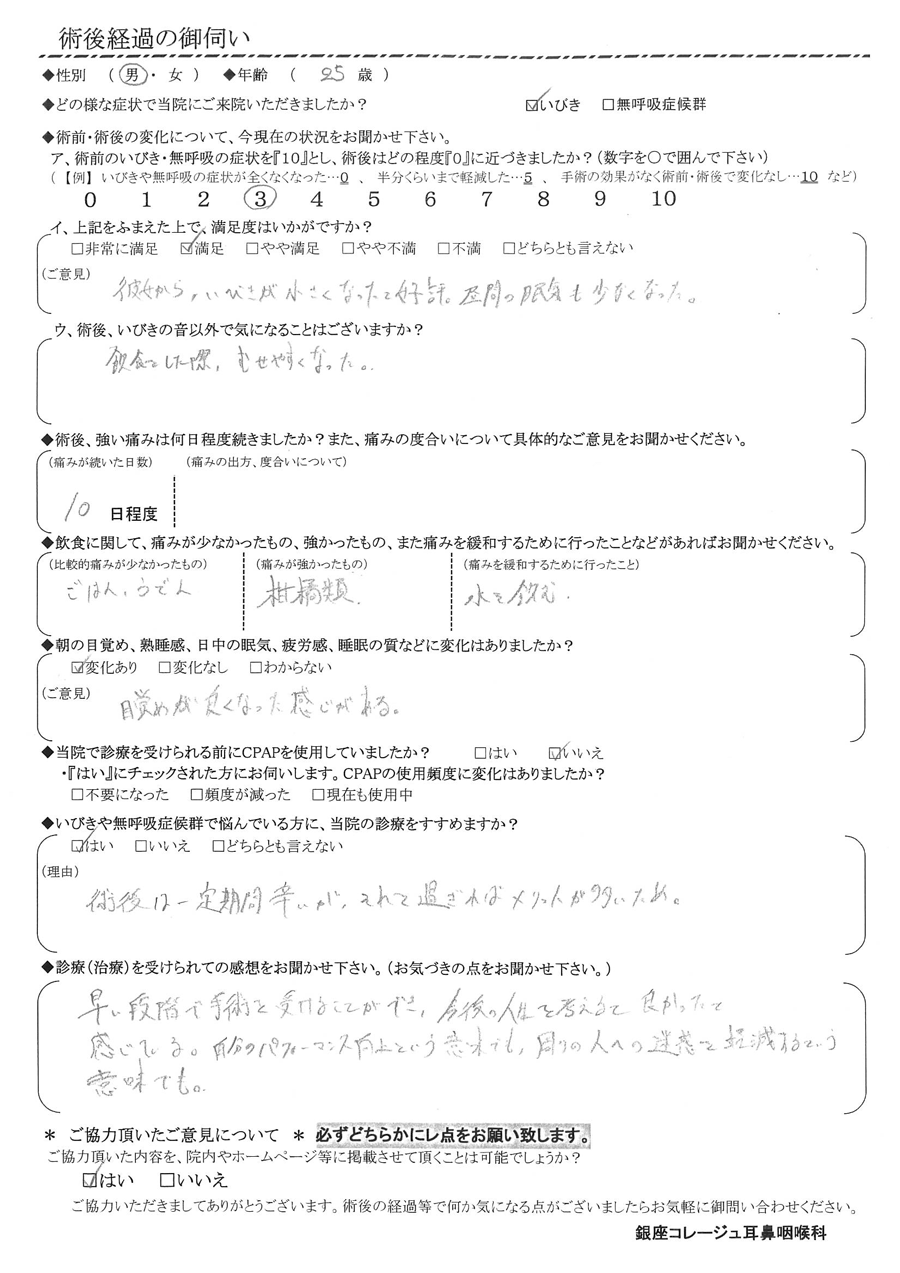 術後経過の御伺い
◆性別 ( 男 ・ 女 ) ◆年齢 ( 25 歳 )
◆どの様な症状で当院にご来院いただきましたか? ☑いびき □無呼吸症候群
◆術前・術後の変化について、今現在の状況をお聞かせ下さい。
ア、術前のいびき・無呼吸の症状を『10』とし、術後はどの程度『0』に近づきましたか?(数字を〇で囲んで下さい)
(【例】いびきや無呼吸の症状が全くなくなった…0 、 半分くらいまで軽減した…5 、 手術の効果がなく術前・術後で変化なし…10 など)
0 1 2 3 4 5 6 7 8 9 10
イ、上記をふまえた上で、満足度はいかがですか?
□非常に満足 ☑満足 □やや満足 □やや不満 □不満 □どちらとも言えない
(ご意見)
彼女から,いびきが小さくなったと好評。昼間の眠気も少なくなった。
ウ、術後、いびきの音以外で気になることはございますか?
飲食をした際,むせやすくなった。
◆術後、強い痛みは何日程度続きましたか?また、痛みの度合いについて具体的なご意見をお聞かせください。
(痛みが続いた日数) (痛みの出方、度合いについて)
10 日程度
◆飲食に関して、痛みが少なかったもの、強かったもの、また痛みを緩和するために行ったことなどがあればお聞かせください。
(比較的痛みが少なかったもの) (痛みが強かったもの) (痛みを緩和するために行ったこと)
ごはん,うどん 柑橘類. 水を飲む.
◆朝の目覚め、熟睡感、日中の眠気、疲労感、睡眠の質などに変化はありましたか?
☑変化あり □変化なし □わからない
(ご意見)
目覚めが良くなった感じがある。
◆当院で診療を受けられる前にCPAPを使用していましたか? □はい ☑いいえ
・『はい』にチェックされた方にお伺いします。CPAPの使用頻度に変化はありましたか?
□不要になった □頻度が減った □現在も使用中
◆いびきや無呼吸症候群で悩んでいる方に、当院の診療をすすめますか?
☑はい □いいえ □どちらとも言えない
(理由)
術後は一定期間辛いが,それを過ぎればメリットが多いため。
◆診療(治療)を受けられての感想をお聞かせ下さい。(お気づきの点をお聞かせください。)
早い段階で手術を受けることができ,今後の人生を考えると良かったと
感じている。自分のパフォーマンス向上という意味でも,周りの人への迷惑を軽減するという
意味でも。
* ご協力頂いたご意見について * 必ずどちらかにレ点をお願い致します。
ご協力頂いた内容を、院内やホームページ等に掲載させて頂くことは可能でしょうか?
☑はい □いいえ
ご協力いただきましてありがとうございます。術後の経過等で何か気になる点がございましたらお気軽に御問い合わせください。
銀座コレージュ耳鼻咽喉科